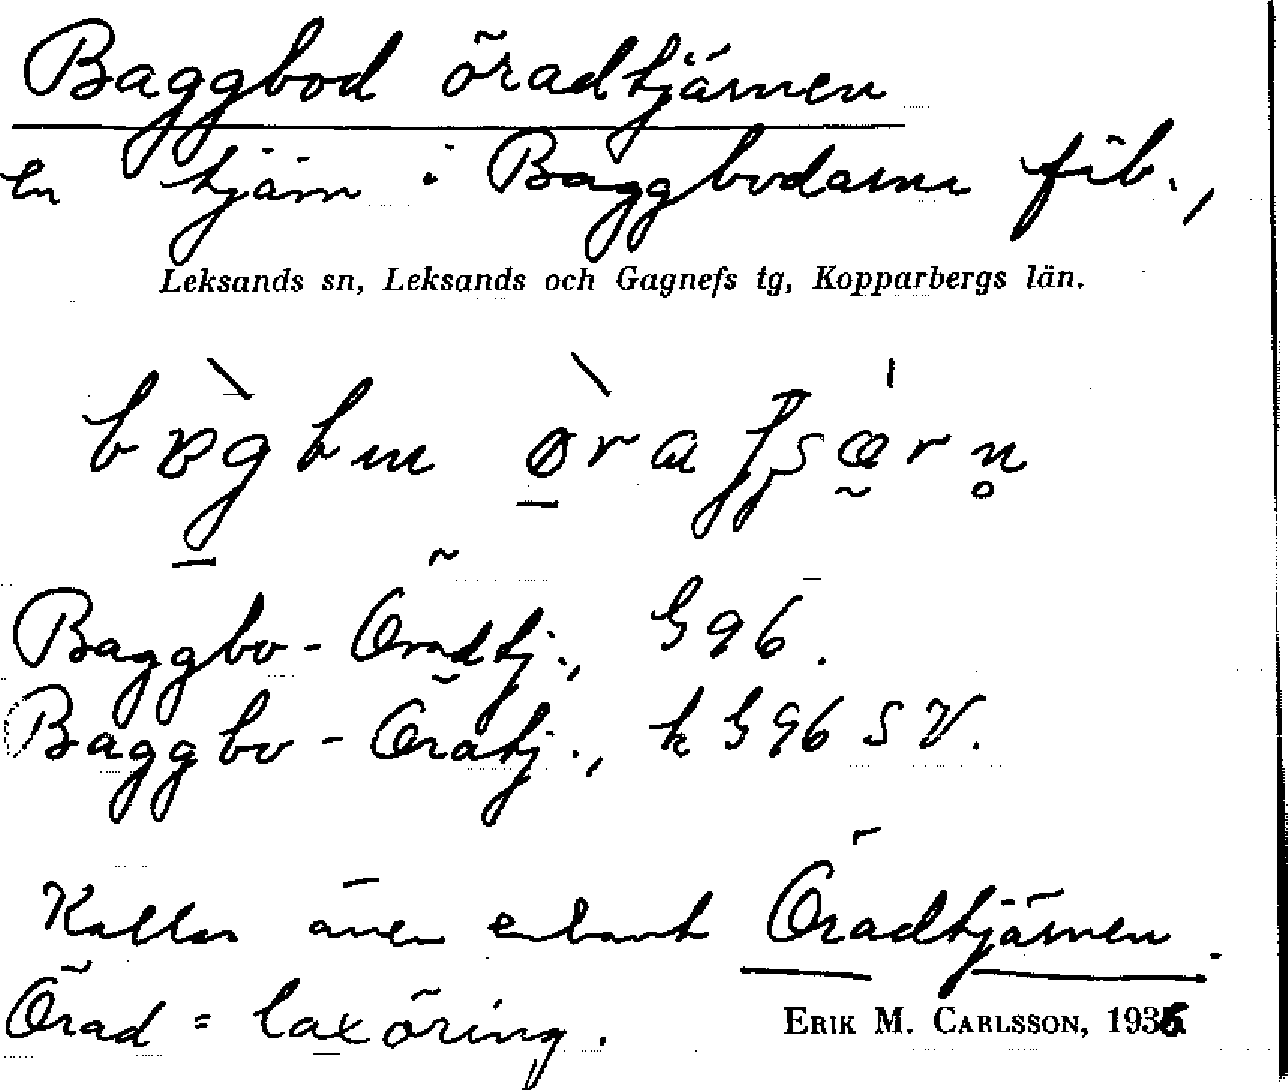 Baggbod öradtjärnen
en tjärn i Baggbodarne fäb.,
Leksands sn, Leksands och Gagnefs tg, Kopparbergs län.
Baggbo-Öradtj., G 96.
Baggbo-Öratj., k G 96 S V.
Kallas även enbart Öradtjärnen.
Örad = laxöring.
ERIK M. CARLSSON, 1936